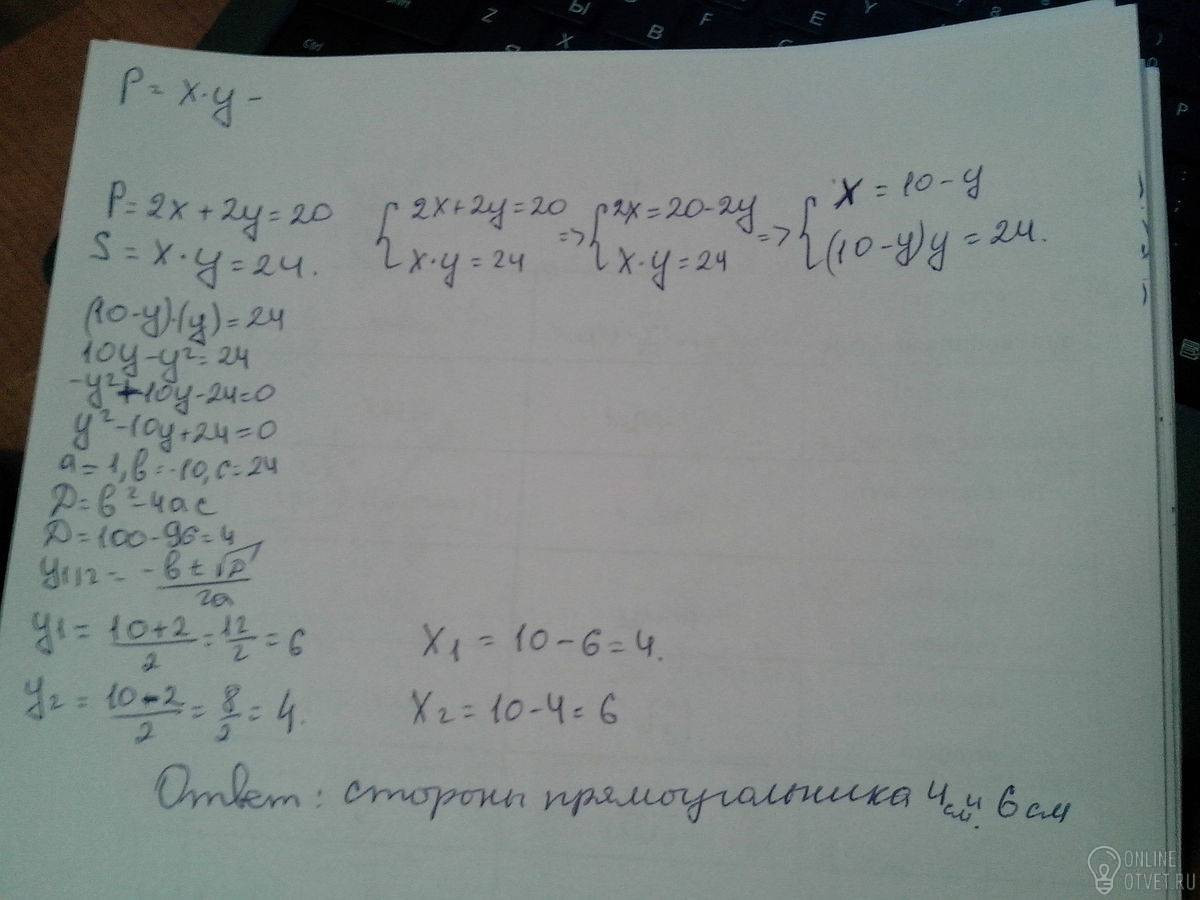 P = x·y -
P = 2x + 2y = 20 { 2x + 2y = 20 => { 2x = 20 - 2y => { x = 10 - y
S = x·y = 24. x·y = 24 x·y = 24 (10-y)y = 24.
(10-y)·(y) = 24
10y - y² = 24
-y² + 10y - 24 = 0
y² - 10y + 24 = 0
a = 1, b = -10, c = 24
D = b² - 4ac
D = 100 - 96 = 4
y1,2 = (-b ± √D)/2a
y1 = (10+2)/2 = 12/2 = 6 x1 = 10 - 6 = 4.
y2 = (10-2)/2 = 8/2 = 4. x2 = 10 - 4 = 6
Ответ: стороны прямоугольника 4 см и 6 см
ONLINE
OTVET.RU